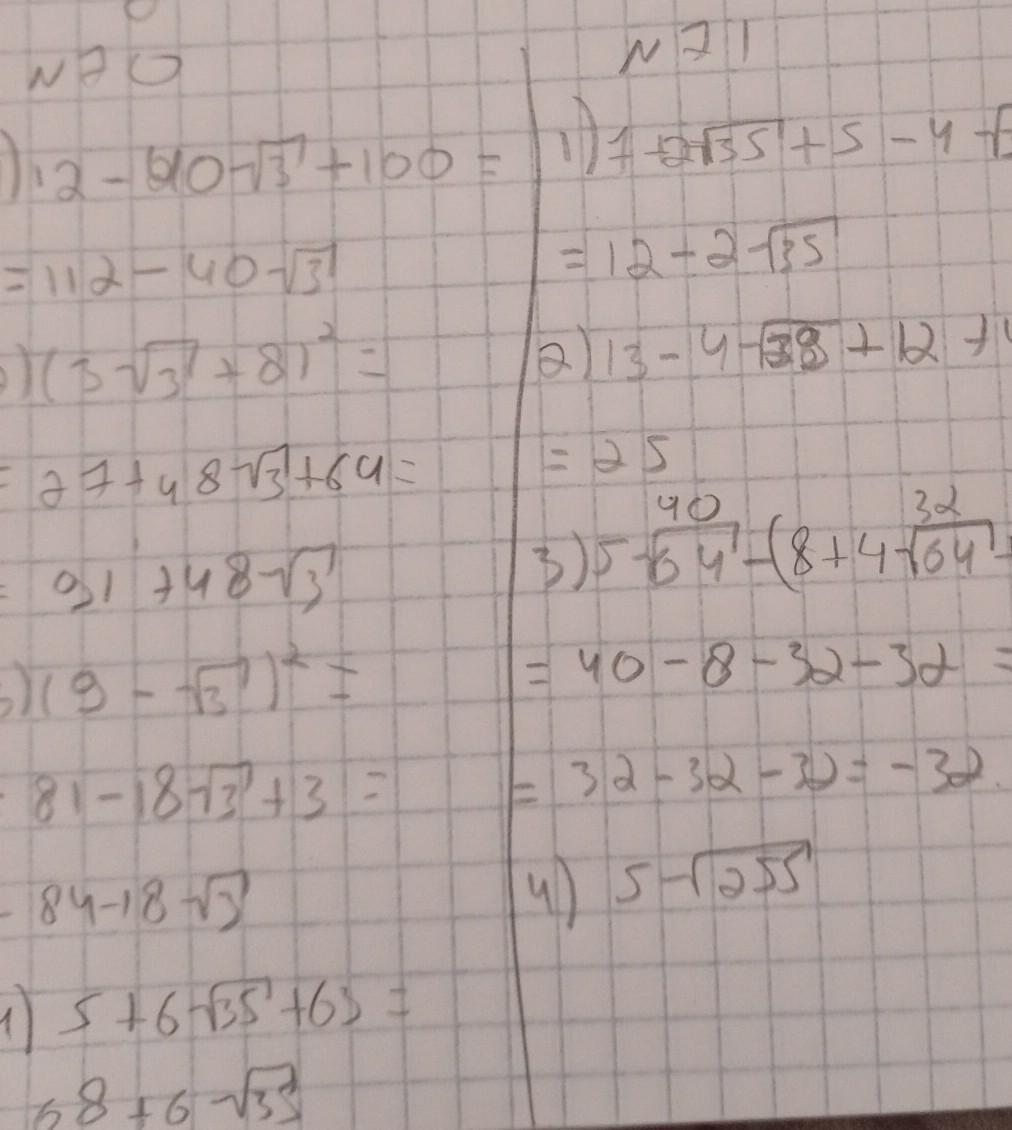 N70
1) 12 - 40√3 + 100 =
= 112 - 40√3
) (3√3 + 8)² =
= 27 + 48√3 + 64 =
= 91 + 48√3
) (9 - √3)² =
81 - 18√3 + 3 =
84 - 18√3
4) 5 + 6√35 + 63 =
68 + 6√35
N71
1) 7 + 2√35 + 5 - 4√
= 12 - 2√35
2) 13 - 4√ + 12 +
= 25
40 32
3) 5√64 - (8 + 4√64
= 40 - 8 - 32 - 32 =
= 32 - 32 - 32 = -32.
4) 5√255